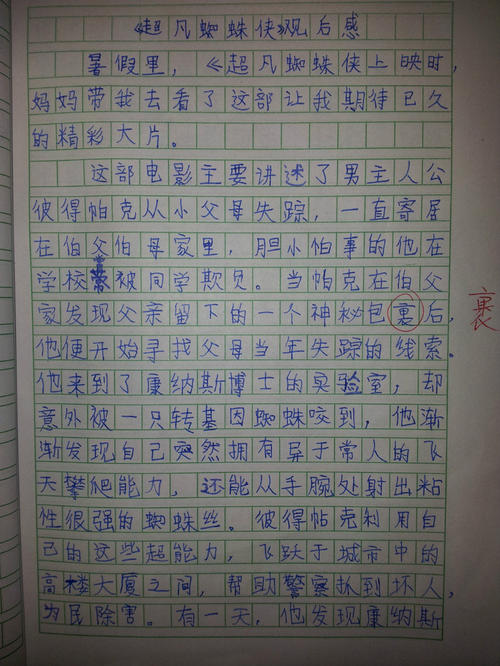 《超凡蜘蛛侠》观后感
暑假里，《超凡蜘蛛侠上映时，
妈妈带我去看了这部让我期待已久
的精彩大片。
这部电影主要讲述了男主人公
彼得帕克从小父母失踪，一直寄居
在伯父伯母家里，胆小怕事的他在
学校常被同学欺负。当帕克在伯父
家发现父亲留下的一个神秘包裹后，
裹
他便开始寻找父母当年失踪的线索。
他来到了康纳斯博士的实验室，却
意外被一只转基因蜘蛛咬到，他渐
渐发现自己突然拥有异于常人的飞
天攀爬能力，还能从手腕处射出粘
性很强的蜘蛛丝。彼得帖克利用自
己的这些超能力，飞跃于城市中的
高楼大厦之间，帮助警察抓到坏人，
为民除害。有一天，他发现康纳斯